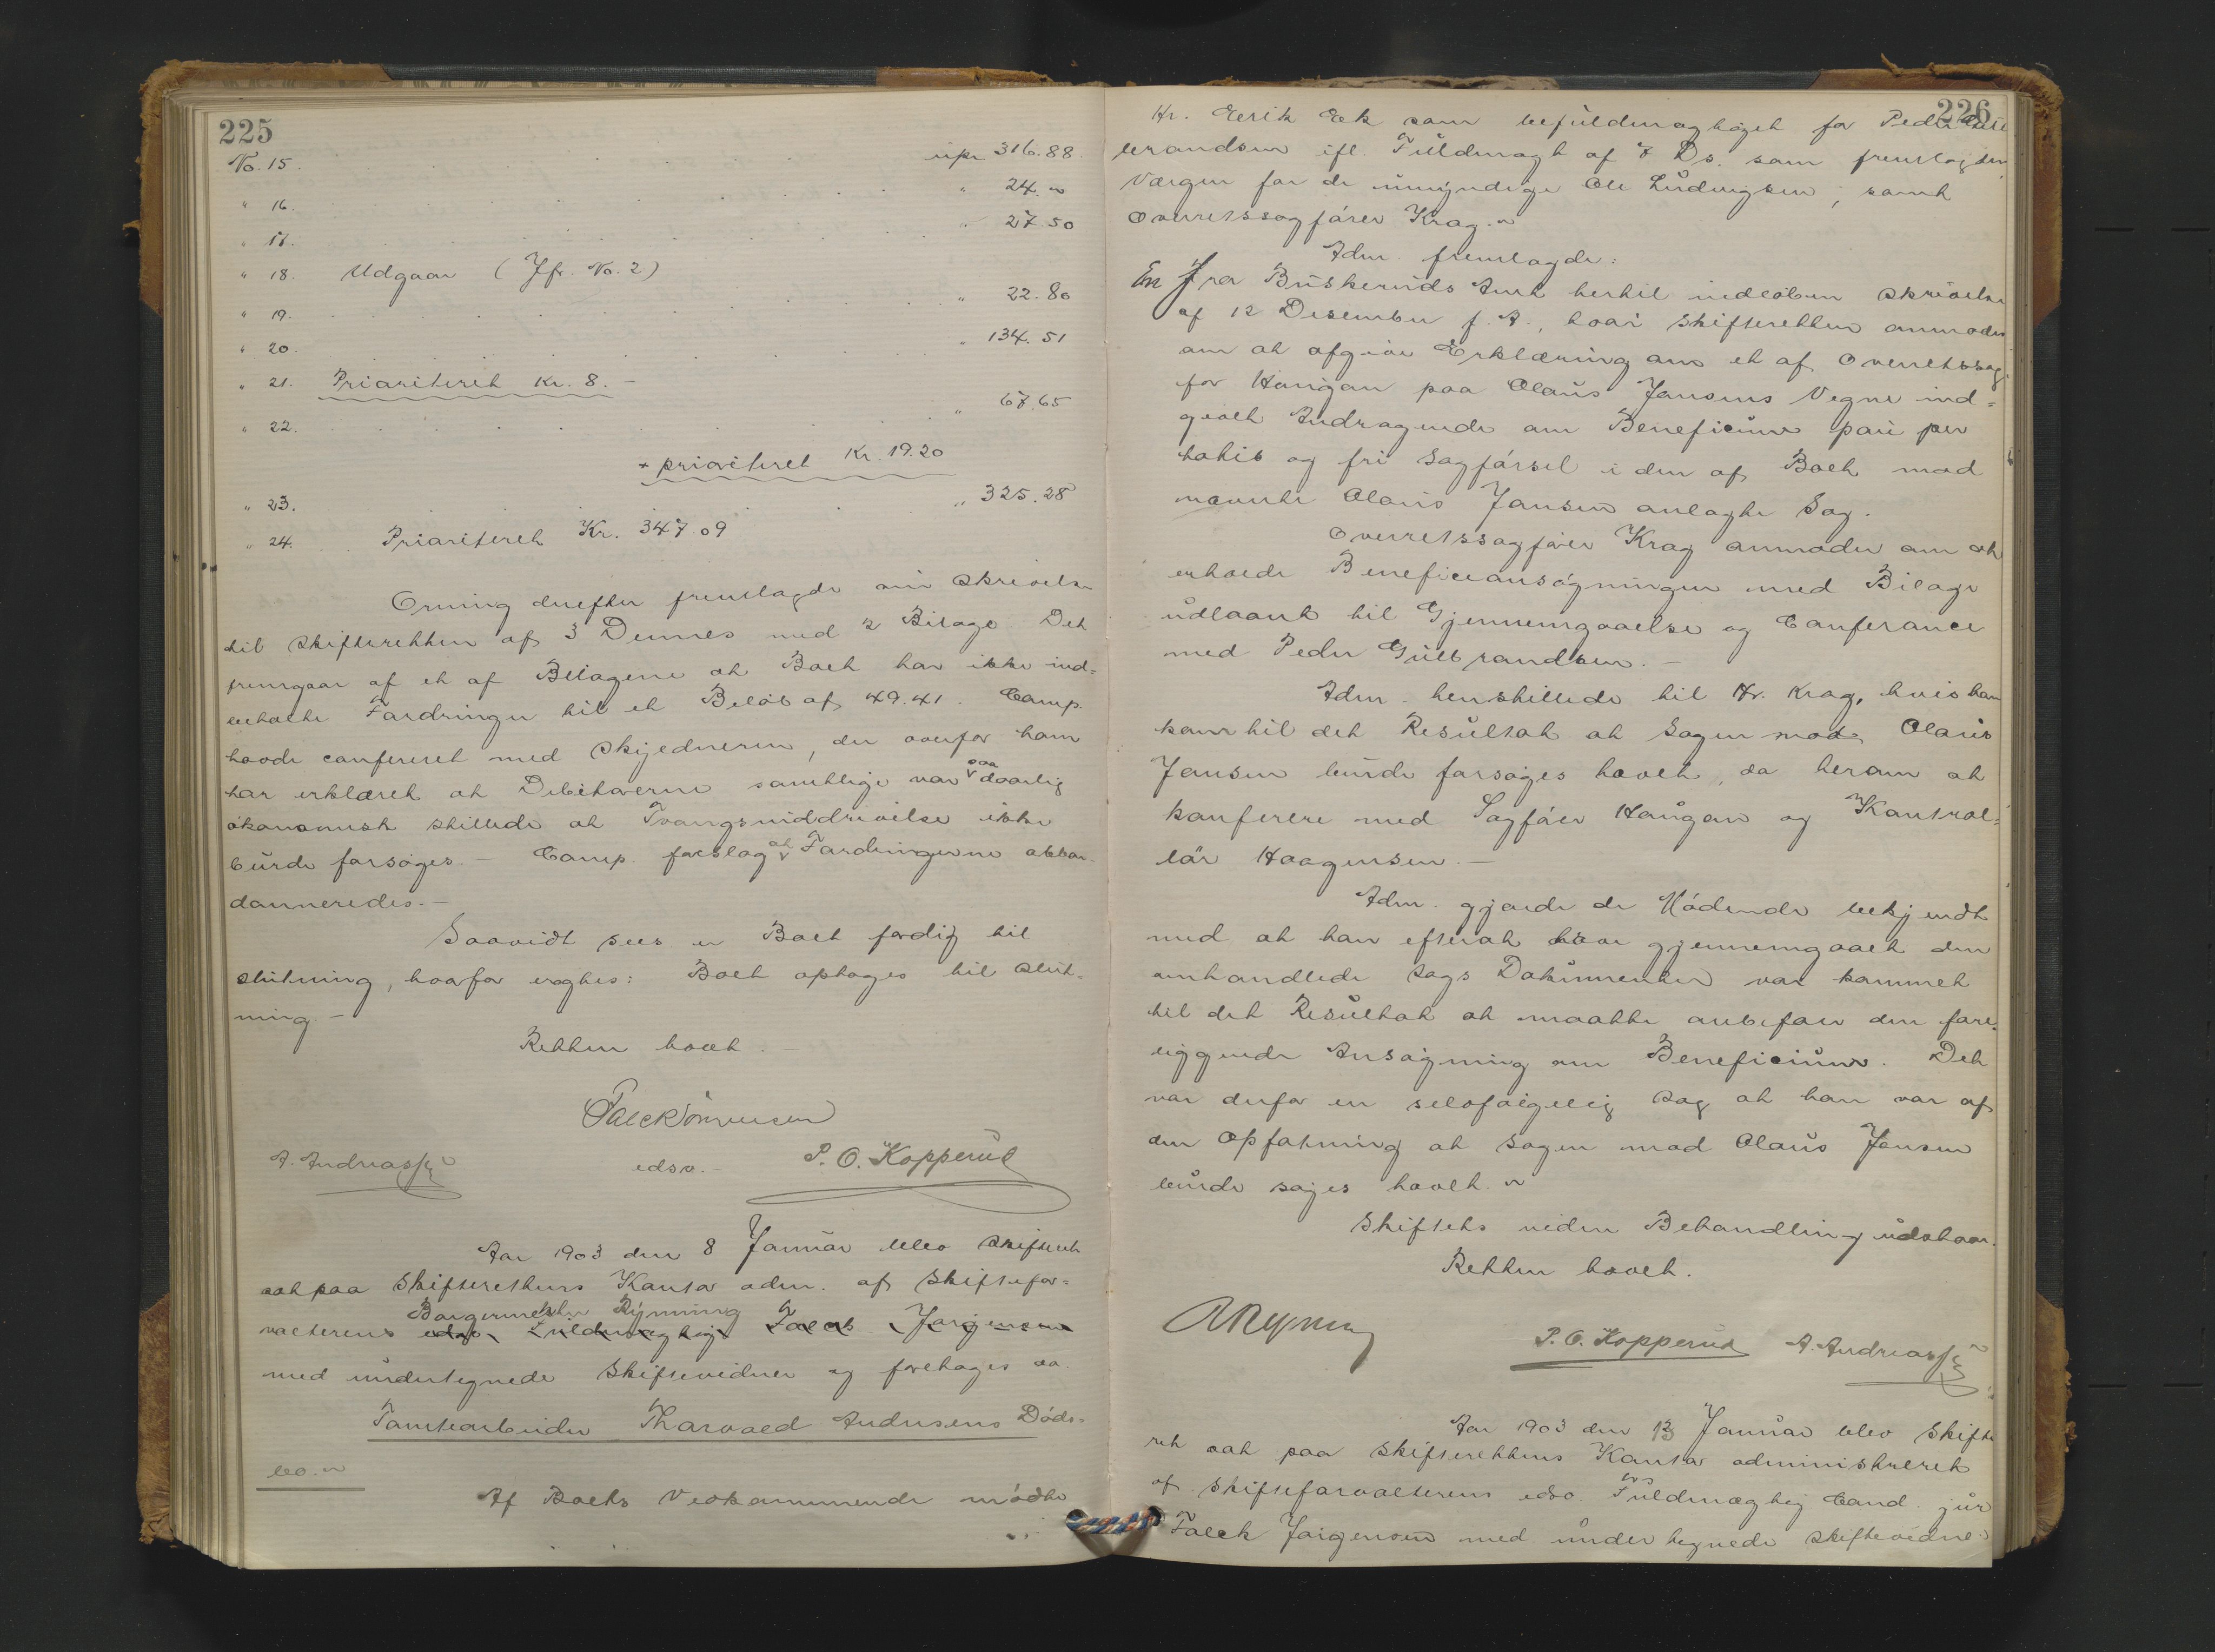 225
No. 15. upr 316.88
" 16. " 24. "
" 17. " 27.50
" 18. Udgaar (Jfr. No. 2)
" 19. " 22.80
" 20. " 134.51
" 21. Prioriteret Kr. 8. –
" 22. " 67.65
+ prioriteret Kr. 19.20
" 23. " 325.28
" 24. Prioriteret Kr. 347.09
Orning derefter fremlagde sin Skrivelse
til Skifteretten af 3 Dennes med 2 Bilage. Det
fremgaar af et af Bilagene at Boet har ikke ind-
betalte Fordringer til et Beløb af 49.41. Comp.
havde confereret med Skyldneren, der overfor ham
har erklæret at Debitorerne samtlige var saa daarlig
økonomisk stillede at Tvangsinddrivelse ikke
burde forsøges. – Comp. foreslog at Fordringerne aban-
donneredes. –
Saavidt sees er Boet færdig til
slutning, hvorfor eragtes: Boet optages til Slut-
ning. –
Retten hævet. –
Falck Jørgensen
A. Andreassen edsv. – P. O. Kopperud
Aar 1903 den 8 Januar blev Skifteret
sat paa Skifterettens Kontor adm. af Skiftefor-
Borgermester Rynning
valterens edsv. Fuldmægtig Falck Jørgensen
med undertegnede Skiftevidner og foretages da.
Tomtearbeider Thorvald Andersens Døds-
bo. "
Af Boets Vedkommende mødte
226
Hr. Eerik Eek som befuldmægtiget for Peder Gul-
brandsen ifl. Fuldmagt af 7 Ds. som fremlagdes,
Værgen for de umyndige Ole Ludvigsen, samt
Overretssagfører Krag. "
Adm. fremlagde:
En fra Buskeruds Amt hertil indløben Skrivelse
af 12 Desember f. A., hvori Skifteretten anmodes
om at afgive Erklæring om et af Overretssag-
før Haugan paa Olaus Jansens Vegne ind-
givet Andragende om Beneficium pau per
tatis og fri Sagførsel i den af Boet mod
nævnte Olaus Jansen anlagte Sag.
Overretssagfører Krag anmoder om at
erholde Beneficeansøgningen med Bilage
udlaant til Gjennemgaaelse og Conferance
med Peder Gulbrandsen. –
Adm. henstillede til Hr. Krag, hvis han
kom til det Resultat at Sagen mod Olaus
Jansen burde forsøges hævet, da herom at
konferere med Sagfører Haugan og Kontrol-
lør Haagensen. –
Adm. gjorde de Mødende bekjendt
med at han efterat have gjennemgaaet den
omhandlede Sags Dokumenter var kommet
til det Resultat at maatte anbefale den fore-
liggende Ansøgning om Beneficium. Det
var derfor en selvfølgelig Sag at han var af
den Opfatning at Sagen mod Olaus Jansen
burde søges hævet. "
Skiftets videre Behandling udstaar.
Retten hævet.
Rynning
P. O. Kopperud A. Andreassen
Aar 1903 den 13 Januar blev Skifte
ret sat paa Skifterettens Kontor administreret
af Skifteforvalterens edsv. Fuldmægtig Cand. jur
Falck Jørgensen med undertegnede Skiftevidner